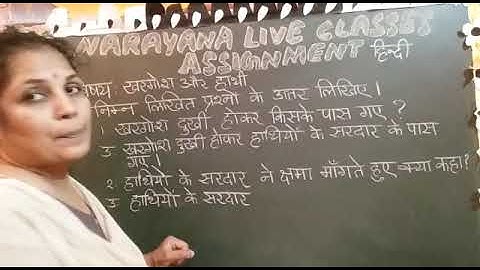 NARAYANA LIVE CLASSES
ASSIGNMENT हिन्दी
विषय: खरगोश और हाथी
निम्न लिखित प्रश्नों के उत्तर लिखिए।
1. खरगोश दुखी होकर किसके पास गए?
उ खरगोश दुखी होकर हाथियों के सरदार के पास
गए।
2. हाथियों के सरदार ने क्षमा माँगते हुए क्या कहा?
उ हाथियों के सरदार